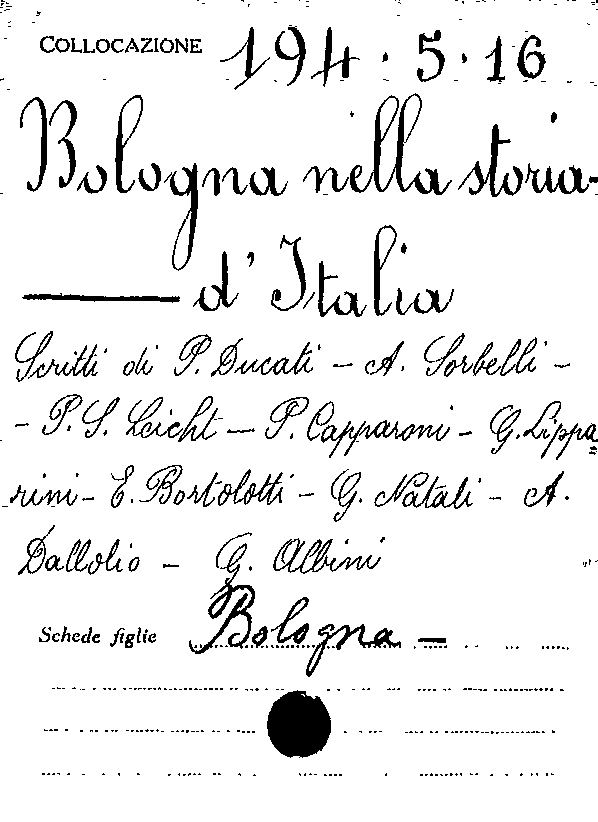 COLLOCAZIONE 194.5.16
Bologna nella storia
d'Italia
Scritti di P. Ducati - A. Sorbelli -
- P. S. Leicht - P. Capparoni - G. Lippa=
rini - E. Bortolotti - G. Natali - A.
Dallolio - G. Albini
Schede figlie Bologna -